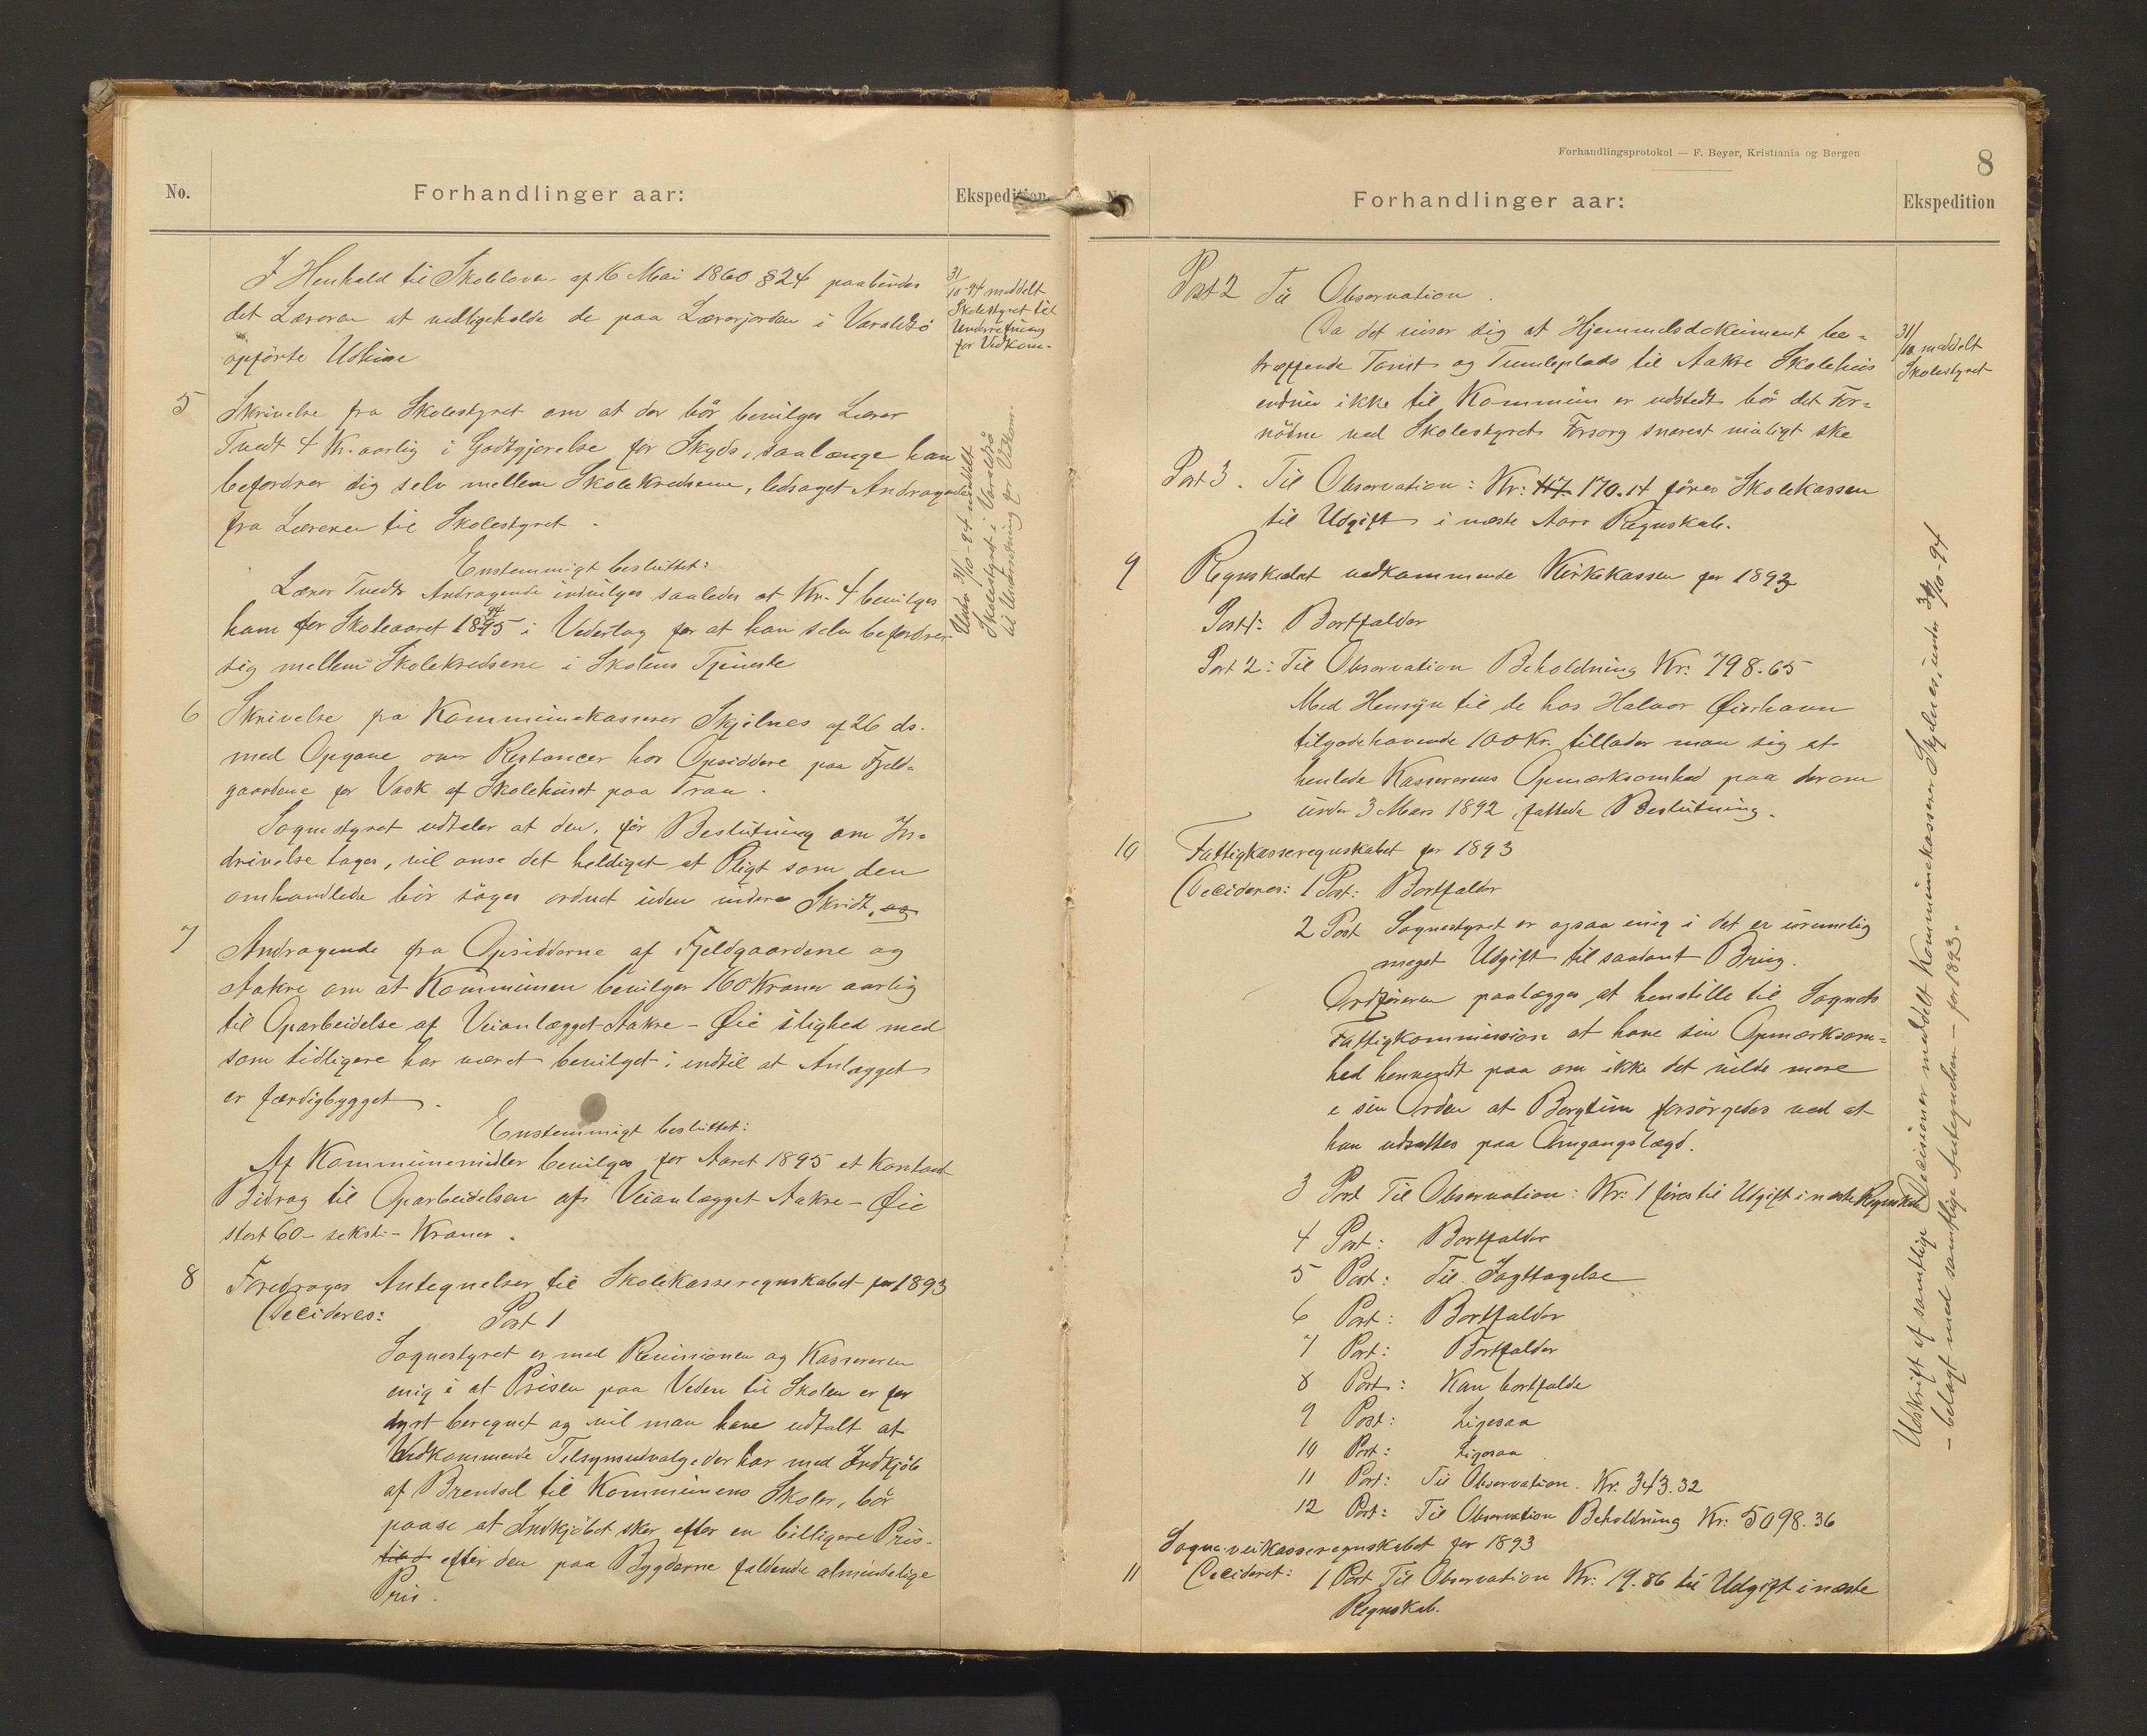 No.
Forhandlinger aar:
Ekspedition
I Henhold til Skoleloven af 16 Mai 1860 § 24 paabindes
det Læreren at vedligeholde de paa Lærerjorden i Varaldsö
opförte Udhuse
31/10-94 meddelt
Skolestyret til
Underretning
for Vedkom-
5
Skrivelse fra Skolestyret om at der bör bevilges Lærer
Tvedt 4 Kr. aarlig i Godtgjörelse for Skyds, saalænge han
befordrer sig selv mellem Skolekredsene, ledsaget Andragende
fra Læreren til Skolestyret.
Enstemmigt besluttet:
Lærer Tvedts Andragende indvilges saaledes at Kr. 4 bevilges
ham for Skoleaaret 1894/95 i Vederlag for at han selv befordrer
sig mellem Skolekredsene i Skolens Tjeneste
Under 31/10-94 meddelt
Skolestyret i Varaldsö
til Underretning for Vedkom.
6
Skrivelse fra Kommunekasserer Skjelnes af 26 ds.
med Opgave over Restancer hos Opsiddere paa Fjeld-
gaardene for Vask af Skolehuset paa Traa.
Sognestyret udtaler at den, för Beslutning om In-
drivelse tages, vil anse det heldigst at Pligt som den
omhandlede bör söges ordnet uden videre Skridt, og
7
Andragende fra Opsidderne af Fjeldgaardene og
Aakre om at Kommunen bevilger 160 Kroner aarlig
til Oparbeidelse af Veianlægget Aakre - Øie i lighed med
som tidligere har været bevilget i indtil at Anlægget
er færdigbygget.
Enstemmigt besluttet:
Af Kommunemidler bevilges for Aaret 1895 et Kontant
Bidrag til Oparbeidelsen af Veianlægget Aakre - Øie
stort 60 - seksti - Kroner.
8
Foredroges Antegnelser til Skolekasseregnskabet for 1893
Decideres: Post 1
Sognestyret er med Revisionen og Kassereren
enig i at Prisen paa Veden til Skolen er for
dyrt beregnet og vil man have udtalt at
Vedkommende Tilsynsudvalg der har med Indkjöb
af Brendsel til Kommunens Skoler, bör
paase at Indkjöbet sker efter en billigere Pris-
efter den paa Bygderne faldende almindelige
Pris.
Forhandlingsprotokol — F. Beyer, Kristiania og Bergen
8
Forhandlinger aar:
Ekspedition
Post 2 Til Observation.
Da det viser sig at Hjemmelsdokument be-
træffende Tomt og Tumleplads til Aakre Skolehus
endnu ikke til Kommun er udstedt bör det For-
nödne ved Skolestyrets Forsorg snarest muligt ske
31/10 meddelt
Skolestyret
Post 3. Til Observation: Kr: 117 170.14 föres Skolekassen
til Udgift i næste Aars Regnskab.
9
Regnskabet vedkommende Kirkekassen for 1893
Post 1: Bortfalder
Post 2: Til Observation Beholdning Kr: 798.65
Med Hensyn til de hos Halvor Øierhavn
tilgodehavende 100 Kr. tillader man sig at
henlede Kassererens Opmærksomhed paa derom
under 3 Mars 1892 fattede Beslutning.
10
Fattigkasseregnskabet for 1893
Decideres: 1 Post: Bortfalder
2 Post Sognestyret er ogsaa enig i det er urimelig
meget Udgift til saadant Brug.
Ordföreren paalægges at henstille til Sognets
Fattigkommission at have sin Opmærksom-
hed henvendt paa om ikke det vilde være
i sin Orden at Bergtun forsörgedes ved at
han udsattes paa Omgangslægd.
3 Post Til Observation: Kr: 1 föres til Udgift i næste Regnskab
4 Post: Bortfalder
5 Post: Til Iagttagelse
6 Post: Bortfalder
7 Post: Bortfalder
8 Post: Kan bortfalde
9 Post: Ligesaa
10 Post: Ligesaa
11 Post: Til Observation. Kr. 343.32
12 Post: Til Observation Beholdning Kr: 5098.36
Sogneveikasseregnskabet for 1893
11
Decideret: 1 Post Til Observation Kr: 19.86 til Udgift i næste
Regnskab.
Udskrift af samtlige Decisioner meddelt Kommunekasserer Skjelnes, under 31/10-94
- belagt med samtlige Antegnelser - for 1893.